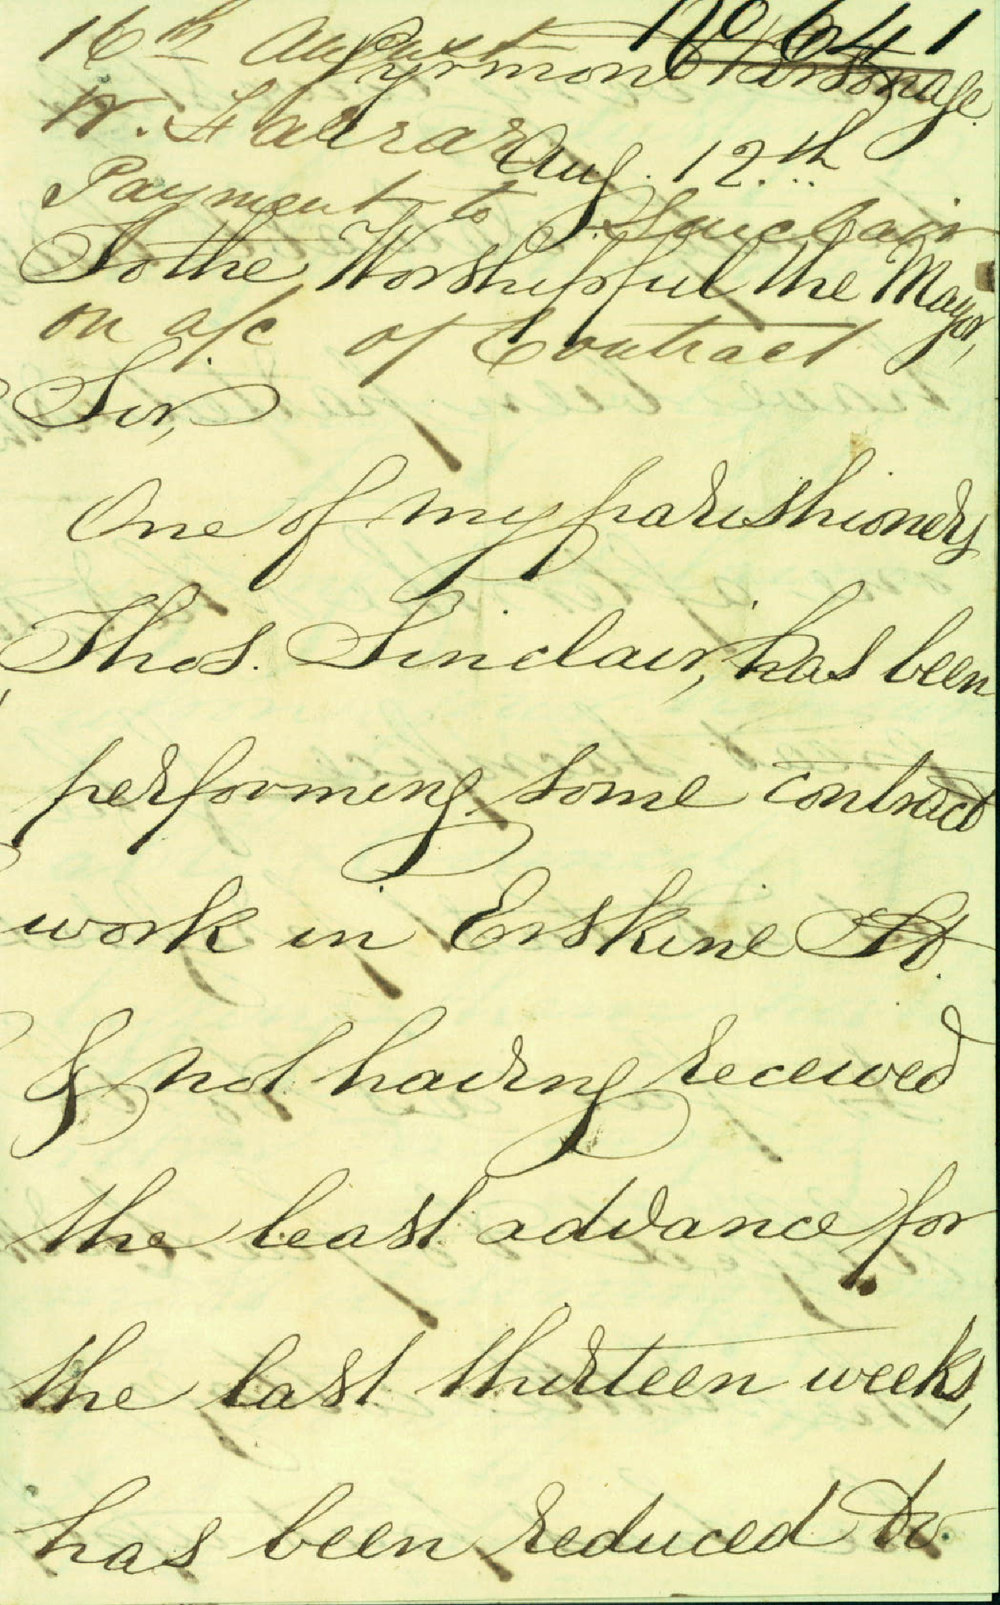 No 641
16th August
Pyrmont Parsonage.
W. Farrar
Aug. 12.th
Payment to Sinclair
To the Worshipful the Mayor,
on a/c of Contract
Sir,
One of my parishioners
Thos. Sinclair, has been
performing some contract
work in Erskine St.
& not having received
the least advance for
the last thirteen weeks,
has been reduced to